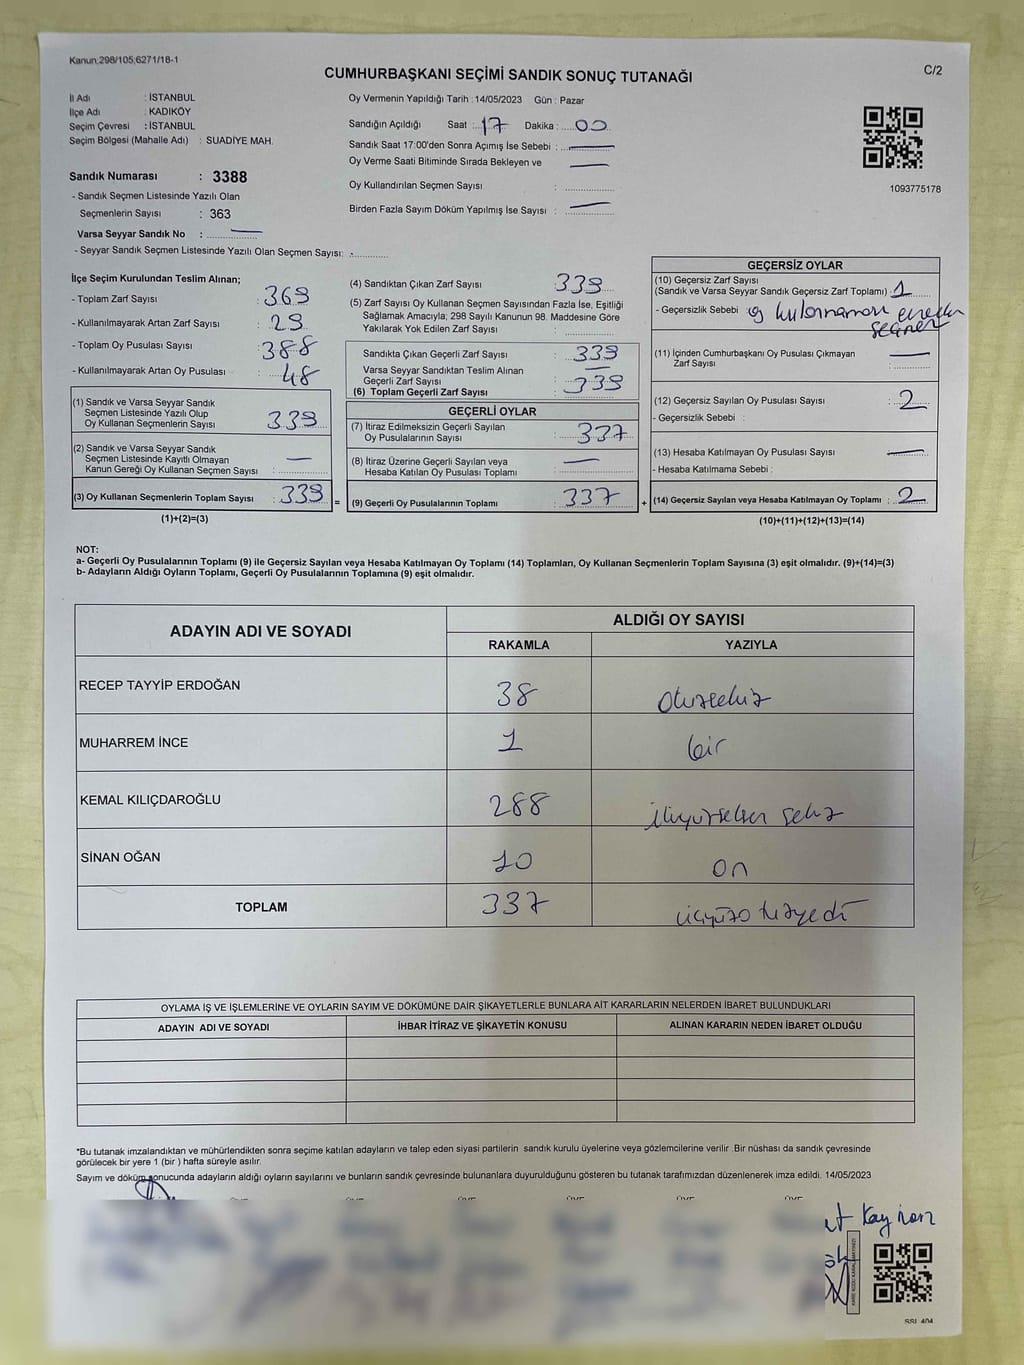 Kanun;298/105;6271/18-1
C/2
CUMHURBAŞKANI SEÇİMİ SANDIK SONUÇ TUTANAĞI
İl Adı : İSTANBUL
İlçe Adı : KADIKÖY
Seçim Çevresi : İSTANBUL
Seçim Bölgesi (Mahalle Adı) : SUADİYE MAH.
Sandık Numarası : 3388
- Sandık Seçmen Listesinde Yazılı Olan
Seçmenlerin Sayısı : 363
Varsa Seyyar Sandık No : —
- Seyyar Sandık Seçmen Listesinde Yazılı Olan Seçmen Sayısı:
Oy Vermenin Yapıldığı Tarih : 14/05/2023 Gün : Pazar
Sandığın Açıldığı Saat : 17 Dakika : 00
Sandık Saat 17:00'den Sonra Açımış İse Sebebi : —
Oy Verme Saati Bitiminde Sırada Bekleyen ve —
Oy Kullandırılan Seçmen Sayısı :
Birden Fazla Sayım Döküm Yapılmış İse Sayısı : —
1093775178
İlçe Seçim Kurulundan Teslim Alınan;
- Toplam Zarf Sayısı : 369
- Kullanılmayarak Artan Zarf Sayısı : 29
- Toplam Oy Pusulası Sayısı : 388
- Kullanılmayarak Artan Oy Pusulası : 48
(1) Sandık ve Varsa Seyyar Sandık
Seçmen Listesinde Yazılı Olup
Oy Kullanan Seçmenlerin Sayısı : 339
(2) Sandık ve Varsa Seyyar Sandık
Seçmen Listesinde Kayıtlı Olmayan
Kanun Gereği Oy Kullanan Seçmen Sayısı : —
(3) Oy Kullanan Seçmenlerin Toplam Sayısı : 339 =
(1)+(2)=(3)
(4) Sandıktan Çıkan Zarf Sayısı : 339
(5) Zarf Sayısı Oy Kullanan Seçmen Sayısından Fazla İse, Eşitliği
Sağlamak Amacıyla; 298 Sayılı Kanunun 98. Maddesine Göre
Yakılarak Yok Edilen Zarf Sayısı :
Sandıkta Çıkan Geçerli Zarf Sayısı : 339
Varsa Seyyar Sandıktan Teslim Alınan
Geçerli Zarf Sayısı : —
(6) Toplam Geçerli Zarf Sayısı : 339
GEÇERLİ OYLAR
(7) İtiraz Edilmeksizin Geçerli Sayılan
Oy Pusulalarının Sayısı : 337
(8) İtiraz Üzerine Geçerli Sayılan veya
Hesaba Katılan Oy Pusulası Toplamı : —
(9) Geçerli Oy Pusulalarının Toplamı : 337 +
GEÇERSİZ OYLAR
(10) Geçersiz Zarf Sayısı
(Sandık ve Varsa Seyyar Sandık Geçersiz Zarf Toplamı) : 1
- Geçersizlik Sebebi : oy kullanmamon
seçmen
(11) İçinden Cumhurbaşkanı Oy Pusulası Çıkmayan
Zarf Sayısı : —
(12) Geçersiz Sayılan Oy Pusulası Sayısı : 2
- Geçersizlik Sebebi :
(13) Hesaba Katılmayan Oy Pusulası Sayısı : —
- Hesaba Katılmama Sebebi :
(14) Geçersiz Sayılan veya Hesaba Katılmayan Oy Toplamı : 2
(10)+(11)+(12)+(13)=(14)
NOT:
a- Geçerli Oy Pusulalarının Toplamı (9) ile Geçersiz Sayılan veya Hesaba Katılmayan Oy Toplamı (14) Toplamları, Oy Kullanan Seçmenlerin Toplam Sayısına (3) eşit olmalıdır. (9)+(14)=(3)
b- Adayların Aldığı Oyların Toplamı, Geçerli Oy Pusulalarının Toplamına (9) eşit olmalıdır.
ADAYIN ADI VE SOYADI
ALDIĞI OY SAYISI
RAKAMLA YAZIYLA
RECEP TAYYİP ERDOĞAN 38 otuzsekiz
MUHARREM İNCE 1 bir
KEMAL KILIÇDAROĞLU 288 ikiyüzseksen sekiz
SİNAN OĞAN 10 on
TOPLAM 337 üçyüzotuzyedi
OYLAMA İŞ VE İŞLEMLERİNE VE OYLARIN SAYIM VE DÖKÜMÜNE DAİR ŞİKAYETLERLE BUNLARA AİT KARARLARIN NELERDEN İBARET BULUNDUKLARI
ADAYIN ADI VE SOYADI İHBAR İTİRAZ VE ŞİKAYETİN KONUSU ALINAN KARARIN NEDEN İBARET OLDUĞU
*Bu tutanak imzalandıktan ve mühürlendikten sonra seçime katılan adayların ve talep eden siyasi partilerin sandık kurulu üyelerine veya gözlemcilerine verilir. Bir nüshası da sandık çevresinde
görülecek bir yere 1 (bir ) hafta süreyle asılır.
Sayım ve döküm sonucunda adayların aldığı oyların sayılarını ve bunların sandık çevresinde bulunanlara duyurulduğunu gösteren bu tutanak tarafımızdan düzenlenerek imza edildi. 14/05/2023
SSI_404